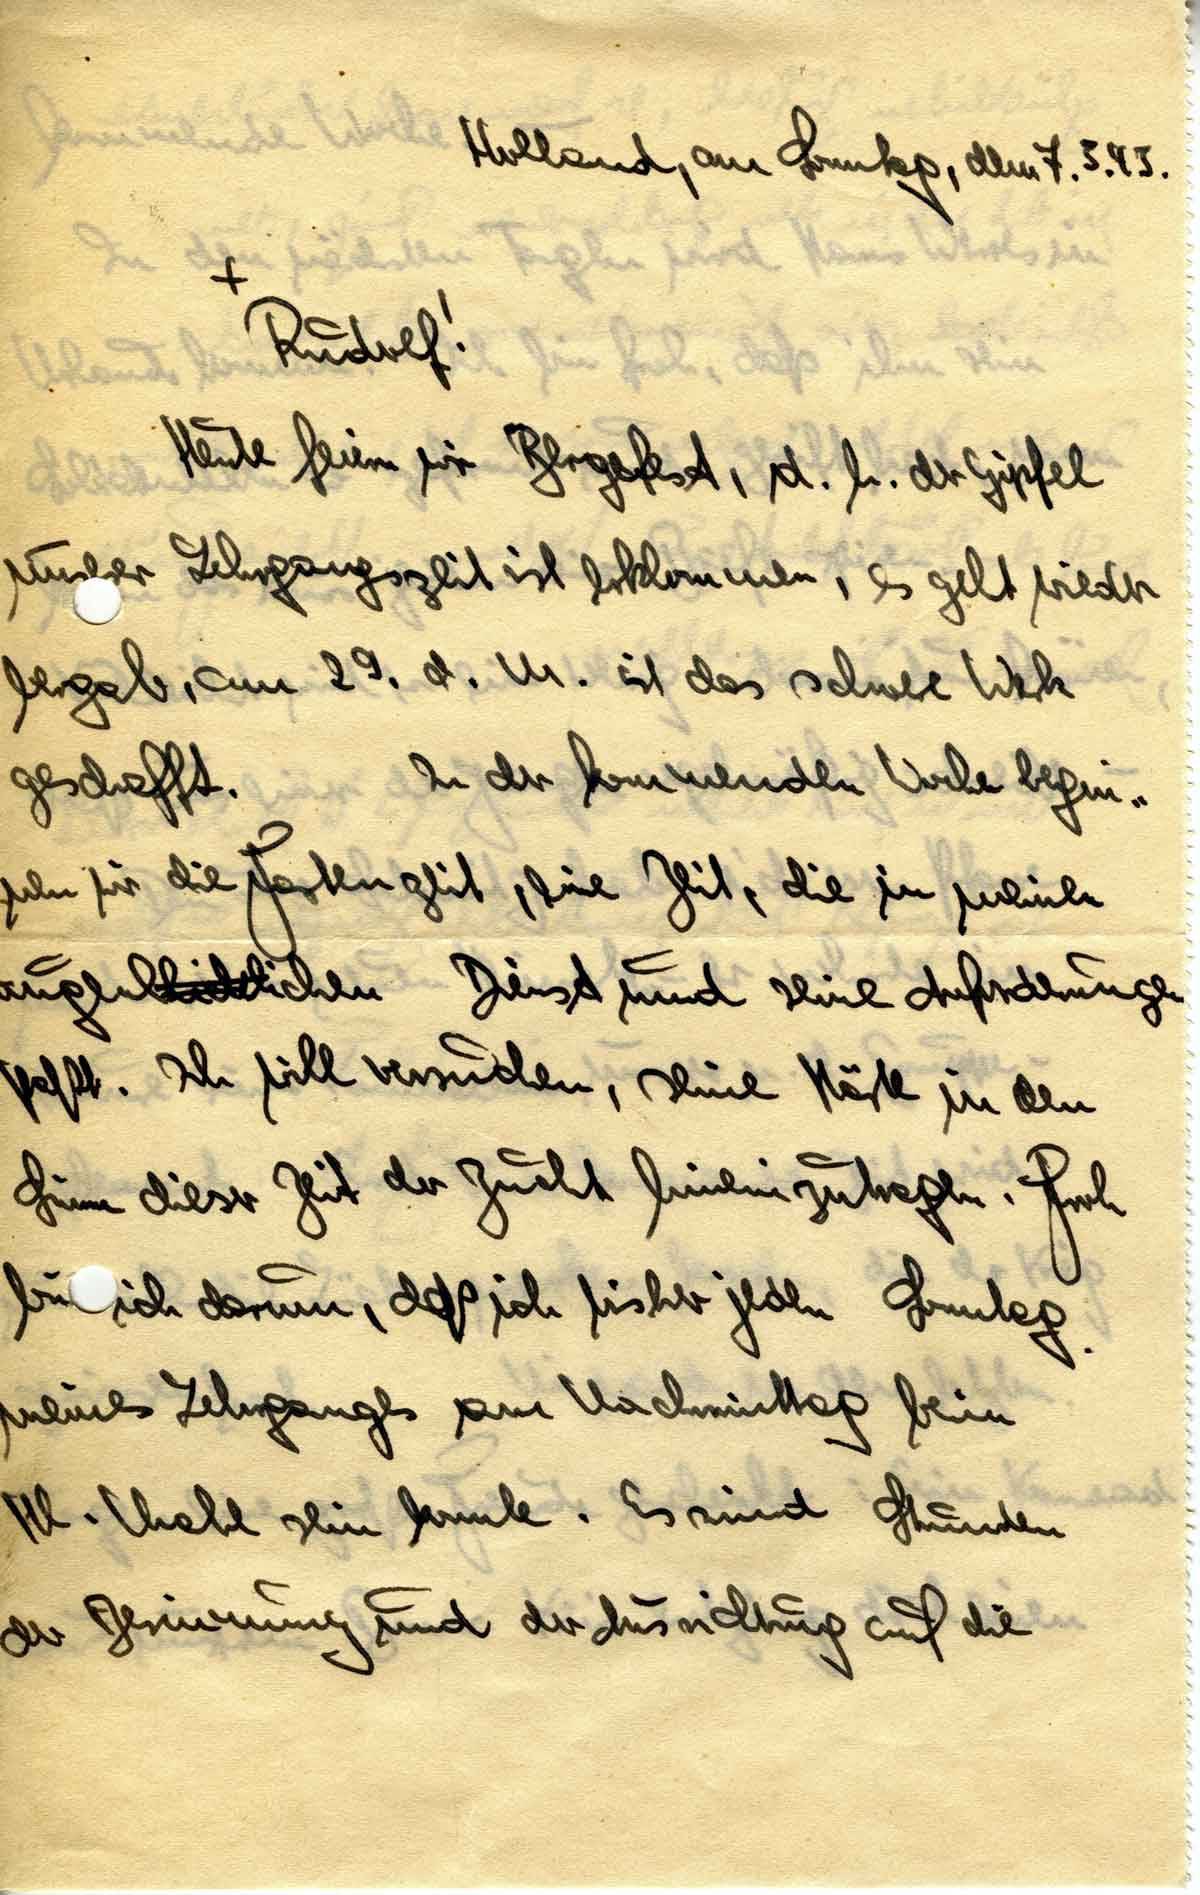 Holland, am Sonntag, dem 7.3.43.
+
Rudolf!
Heute feiern wir Bergefest, d. h. der Gipfel
unserer Lehrgangszeit ist erklommen, es geht wieder
bergab, am 29. d. M. ist das schwere Werk
geschafft. In der kommenden Woche begin„
nen wir die Fastenzeit, eine Zeit, die in meinen
augenblicklichen Dienst und seine Anforderungen
paßt. Ich will versuchen, seine Härte in den
Sinn dieser Zeit der Zucht hineinzutragen. Froh
bin ich darum, daß ich bisher jeden Sonntag
meines Lehrganges am Nachmittag beim
Hl. Mahl sein konnte. Es sind Stunden
der Besinnung und der Ausrichtung auf die